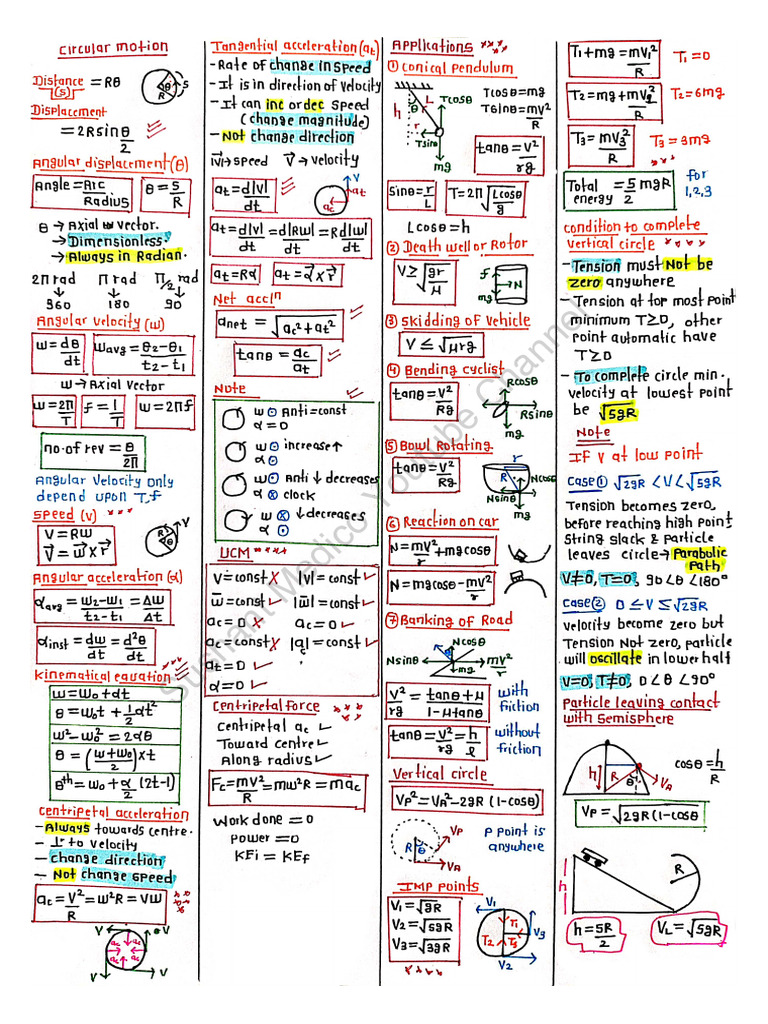 Circular motion
Distance = Rθ
(s)
R θ S
Displacement
= 2R sin θ/2
Angular displacement (θ)
Angle = Arc/Radius
θ = S/R
θ → Axial vector.
→ Dimensionless.
→ Always in Radian.
2π rad π rad π/2 rad
360 180 90
Angular velocity (ω)
ω = dθ/dt
ωavg = θ2-θ1/t2-t1
ω → Axial vector
ω = 2π/T
f = 1/T
ω = 2πf
no. of rev = θ/2π
Angular velocity only
depend upon T, f
Speed (v)
V = Rω
V⃗ = ω⃗ x r⃗
R θ V
Angular acceleration (α)
αavg = ω2-ω1/t2-t1 = Δω/Δt
αinst = dω/dt = d²θ/dt
Kinematical equation
ω = ω0 + αt
θ = ω0t + 1/2 αt²
ω² - ω0² = 2αθ
θ = (ω+ω0/2) x t
θth = ω0 + α/2 (2t-1)
Centripetal acceleration
- Always towards centre.
- ⊥r to velocity
- change direction
- Not change speed
at = V²/R = ω²R = Vω
V V V V
ac ac ac ac
Tangential acceleration (at)
- Rate of change in speed
- It is in direction of velocity
- It can inc or dec speed
(change magnitude)
- Not change direction
|v| → speed V⃗ → velocity
at = d|v|/dt
V at ac
at = d|v|/dt = d|Rω|/dt = R d|ω|/dt
at = Rα
at = α⃗ x r⃗
Net accln
anet = √ac² + at²
tanθ = ac/at
Note
ω ⊙ Anti = const
α = 0
ω ⊙ increase ↑
α ⊙
ω ⊙ Anti ↓ decreases
α ⊗ clock
ω ⊗ ↓ decreases
α ⊙
UCM
V⃗ = const ✗ |V| = const ✓
ω⃗ = const ✓ |ω| = const ✓
ac = 0 ✗ αc = 0 ✓
ac = const ✗ |ac| = const ✓
at = 0 ✓
α = 0 ✓
Centripetal force
Centripetal ac ✓
Toward centre ✓
Along radius ✓
Fc = mV²/R = mω²R = mac
Work done = 0
Power = 0
KEi = KEf
Applications
① Conical Pendulum
θ L h r Tcosθ Tsinθ mg
Tcosθ = mg
Tsinθ = mV²/R
tanθ = V²/rg
sinθ = r/L
T = 2π √Lcosθ/g
Lcosθ = h
② Death well or Rotor
V ≥ √gr/μ
f N mg
③ Skidding of vehicle
V ≤ √μrg
④ Bending cyclist
tanθ = V²/Rg
Rcosθ
Rsinθ
mg
⑤ Bowl Rotating
tanθ = V²/Rg
r R Ncosθ Nsinθ mg
⑥ Reaction on car
N = mV²/r + mgcosθ
N = mgcosθ - mV²/r
⑦ Banking of Road
Ncosθ
Nsinθ mV²/r
mg
V²/rg = tanθ+μ/1-μtanθ with friction
tanθ = V²/rg = h/l without friction
Vertical circle
VP² = VA² - 2gR (1-cosθ)
R θ VP VA
P point is
anywhere
IMP points
V1 = √gR
V2 = √5gR
V3 = √3gR
V1 T1 T2 T3 V3 V2
T1 + mg = mV1²/R T1 = 0
T2 = mg + mV2²/R T2 = 6mg
T3 = mV3²/R T3 = 3mg
Total energy = 5/2 mgR for 1,2,3
condition to complete
vertical circle
- Tension must Not be
zero anywhere
- Tension at top most point
minimum T≥0, other
point automatic have
T≥0
- To complete circle min.
velocity at lowest point
be √5gR
Note
If V at low point
Case① √2gR < V < √5gR
Tension becomes zero,
before reaching high point
String slack & Particle
leaves circle → Parabolic
Path
V≠0, T=0, 90<θ<180°
Case② 0 ≤ V ≤ √2gR
velocity become zero but
Tension Not zero, particle
will oscillate in lower half
V=0, T≠0, 0<θ<90°
Particle leaving contact
with Semisphere
h R θ VA
cosθ = h/R
VP = √2gR(1-cosθ
h R
h = 5R/2
VL = √5gR
Sushant Medico Youtube Channel